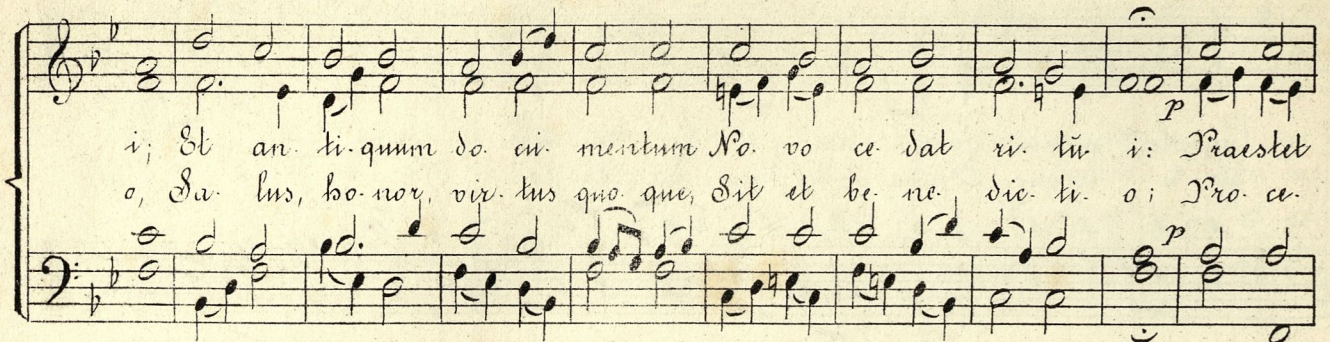 p
i; Et an- ti-quum do- cu- mentum No- vo ce- dat ri- tū- i: Praestet
o, Sa- lus, ho-nor, vir- tus quo- que, Sit et be- ne- dic- ti- o; Pro- ce-
p